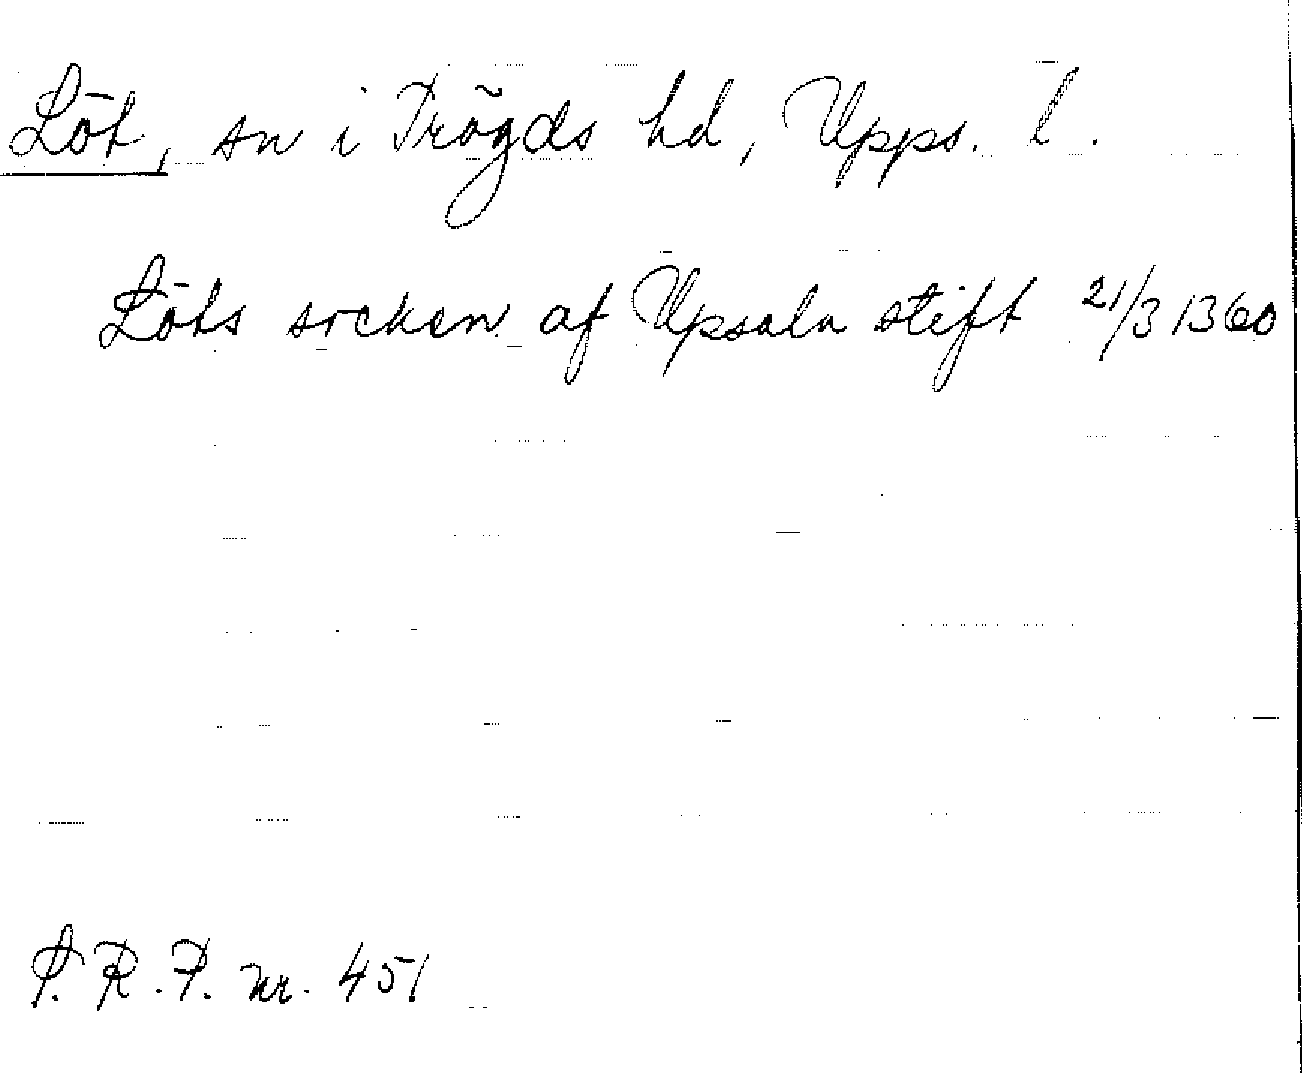 Löt, sn i Trögds hd, Upps. l.
Löts socken af Upsala stift 21/3 1360
S. R. P. nr. 451